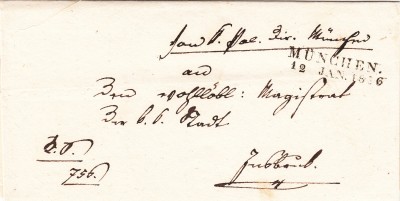 Von K. Pol. Dir. München
MÜNCHEN.
12 JAN. 1846
an
Den wohllöbl: Magistrat
Der k. k. Stadt
Insbruck.
756.